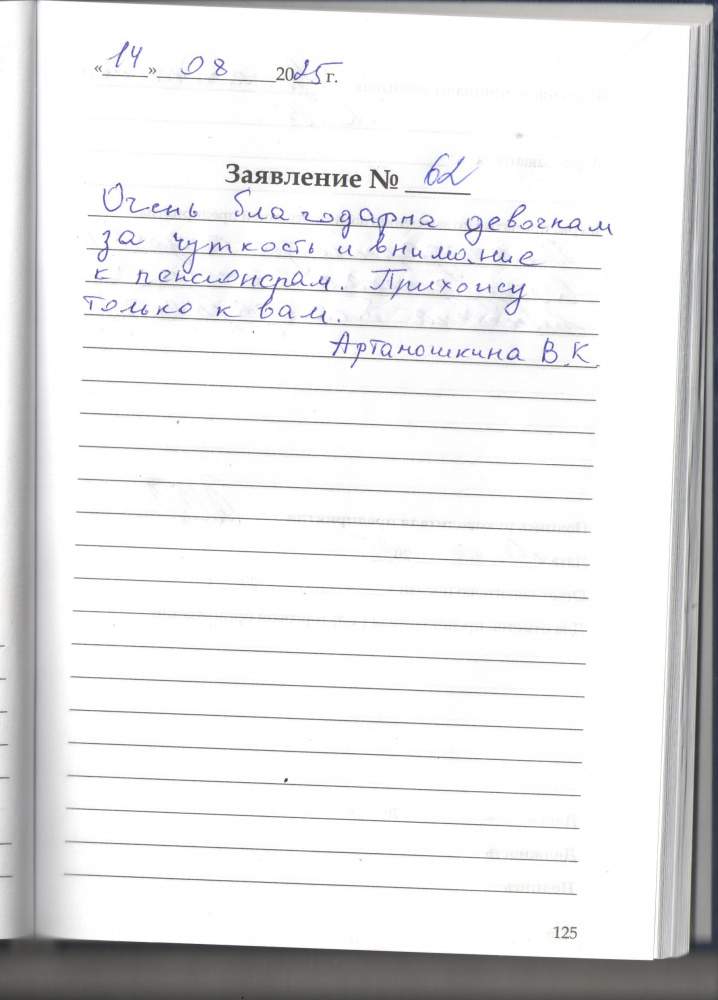 «14» 08 2025 г.
Заявление № 62
Очень благодарна девочкам
за чуткость и внимание
к пенсионерам. Прихожу
только к вам.
Артамошкина В.К.
125